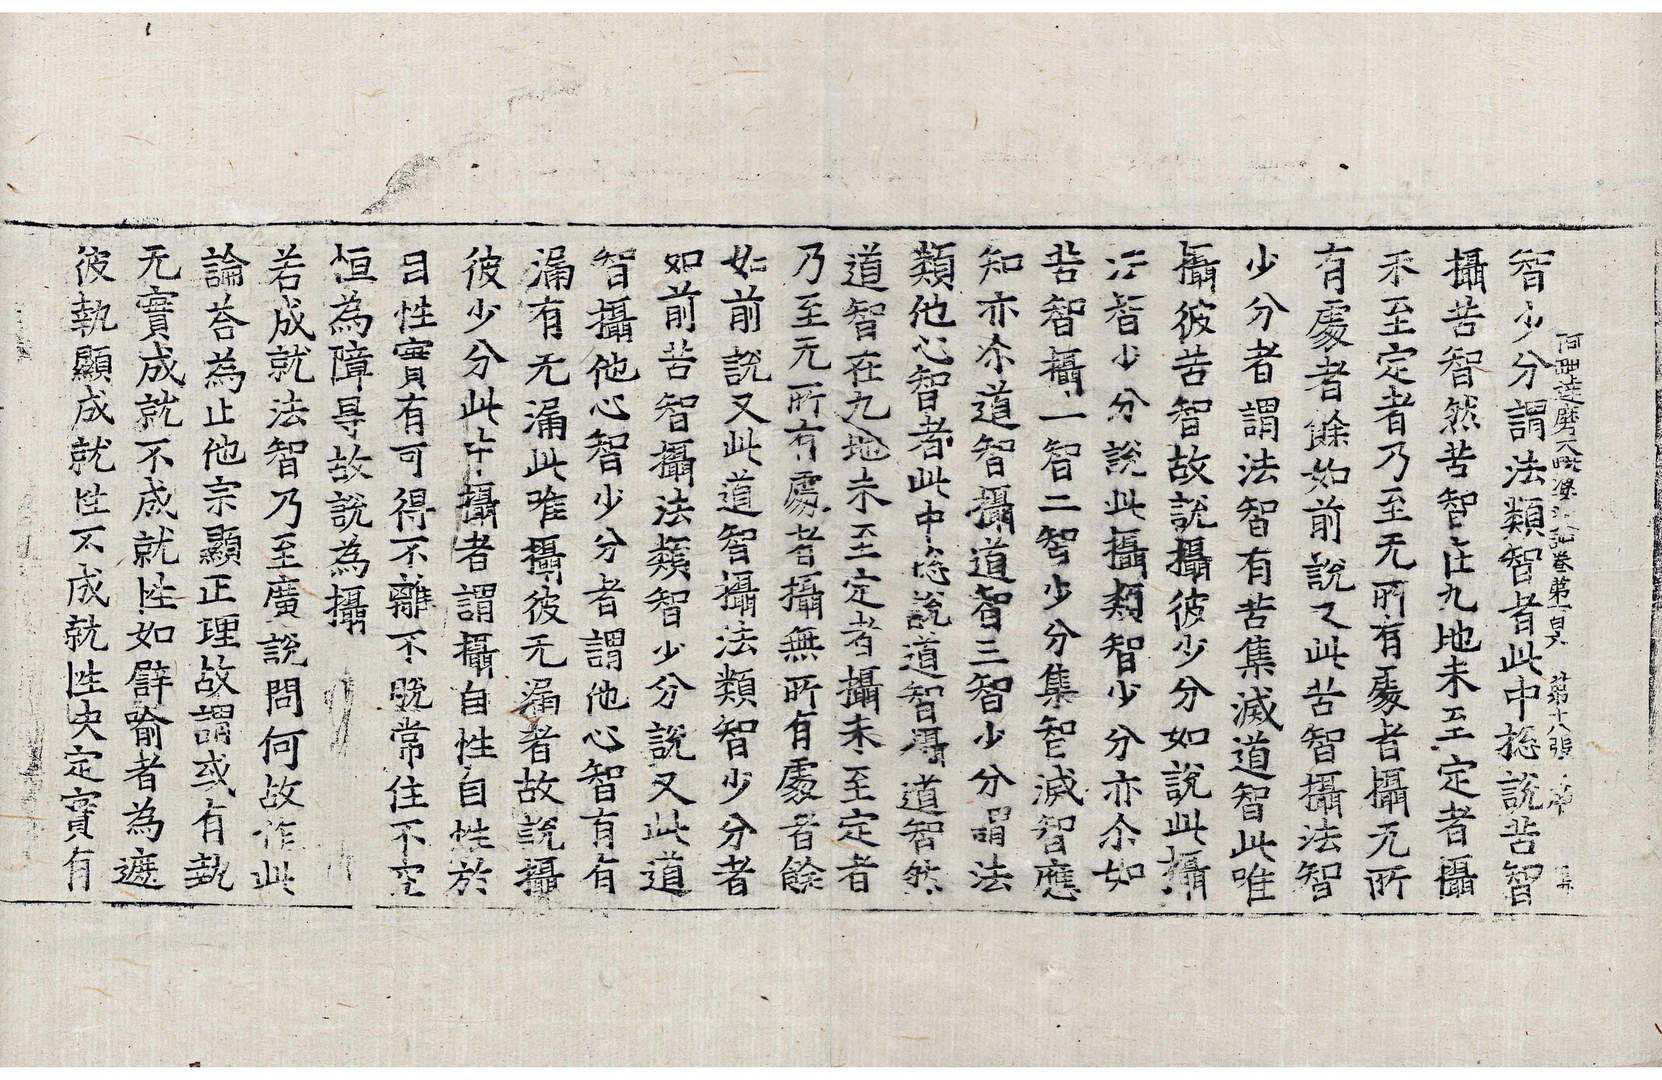 阿毗達磨大毗婆沙論卷第一百六 第十八張
智少分謂法類智者此中捴說苦智
攝苦智然苦智在九地未至定者攝
未至定者乃至无所有處者攝无所
有處者餘如前說又此苦智攝法智
少分者謂法智有苦集滅道智此唯
攝彼苦智故說攝彼少分如說此攝
法智少分說此攝類智少分亦尒如
苦智攝一智二智少分集智滅智應
知亦尒道智攝道智三智少分謂法
類他心智者此中捴說道智攝道智然
道智在九地未至定者攝未至定者
乃至无所有處者攝無所有處者餘
如前說又此道智攝法類智少分者
如前苦智攝法類智少分說又此道
智攝他心智少分者謂他心智有有
漏有无漏此唯攝彼无漏者故說攝
彼少分此中攝者謂攝自性自性於
自性實有可得不離不脫常住不空
恒為障㝵故說為攝
若成就法智乃至廣說問何故作此
論荅為止他宗顯正理故謂或有執
无實成就不成就性如譬喻者為遮
彼執顯成就性不成就性決定實有